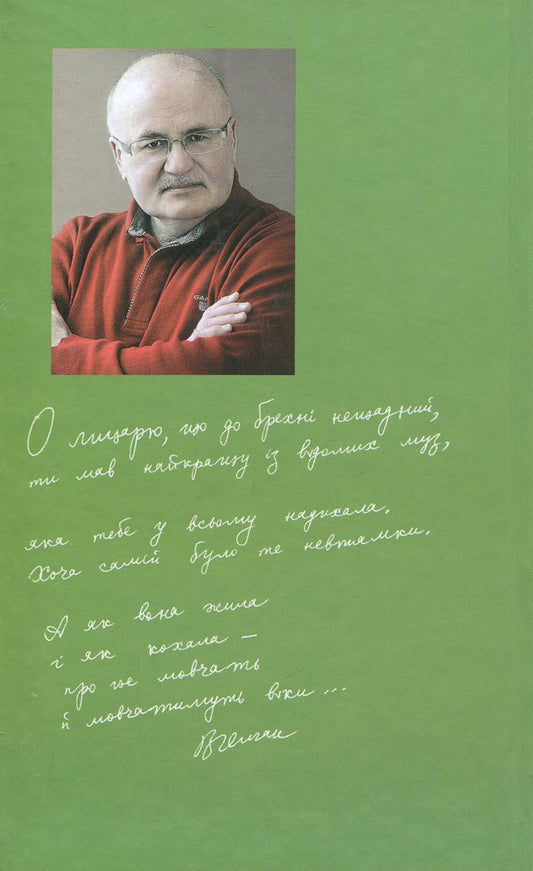 GANT
О лицарю, що до брехні нещадний,
ти мав найкращу із відомих муз,
яка тебе у всьому надихала.
Хоча самій було те невтямки.
А як вона жила
і як кохала –
про це мовчать
й мовчатимуть віки ...